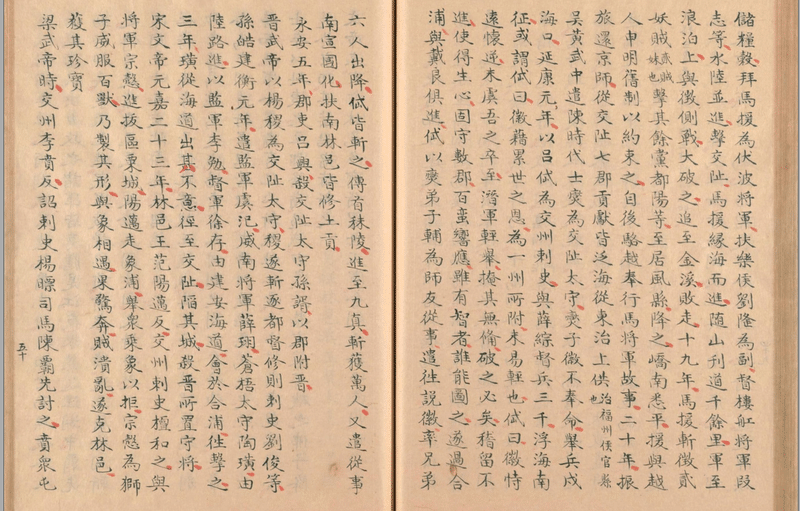 儲糧穀拜馬援為伏波將軍扶樂侯劉隆為副督樓舡將軍段
志等水陸並進擊交趾馬援緣海而進隨山刊道千餘里軍至
浪泊上與徵側戰大破之追至金溪敗走十九年馬援斬徵貳
妖賊亦賊妹也擊其餘黨都陽等至居風縣降之嶠南悉平援與越
人申明舊制以約束之自後駱越奉行馬將軍故事二十年振
旅還京師從交趾七郡貢獻皆泛海從東治上供治福州侯官縣也
吳黃武中遣陳時代士燮為交趾太守燮子徽不奉命舉兵戍
海口延康元年以呂岱為交州刺史與薛綜督兵三千浮海南
征或謂岱曰徽藉累世之恩為一州所附未易輕也岱曰徽恃
遠懷逆未虞吾之卒至潛軍輕舉掩其無備破之必矣稽留不
進使得生心固守數郡百蠻響應雖有智者誰能圖之遂過合
浦與戴良俱進岱以燮弟子輔為師友從事遣往說徽率兄弟
六人出降岱皆斬之傳首秣陵進至九真斬獲萬人又遣從事
南宣國化扶南林邑皆修土貢
永安五年郡吏呂興殺交趾太守孫諝以郡附晋
晋武帝以楊稷為交趾太守稷遂斬逐都督修則刺史劉俊等
孫皓建衡元年遣監軍虞汜威南將軍薛珝蒼梧太守陶璜由
陸路進以監軍李勉督軍徐存由建安海道會於合浦往擊之
三年璜從海道出其不意徑至交趾陷其城殺晋所置守將
宋文帝元嘉二十三年林邑王范陽邁反交州刺史檀和之與
將軍宗慤進拔區粟城陽邁走象浦舉衆乘象以拒宗慤為獅
子威服百獸乃製其形與象相遇果驚奔賊潰亂遂克林邑
獲其珍寶
梁武帝時交州李賁反詔刺史楊㬓司馬陳霸先討之賁衆屯
五十